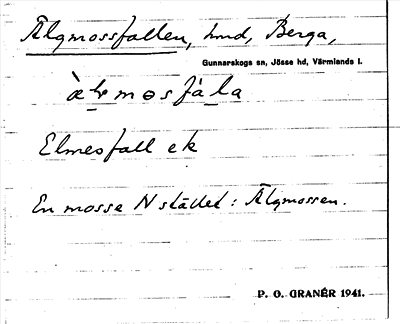 Älgmossfallen, hmd, Berga,
Gunnarskogs sn, Jösse hd, Värmlands l.
Elmesfall ek
En mosse N stället: Älgmossen.
P. O. GRANÉR 1941.